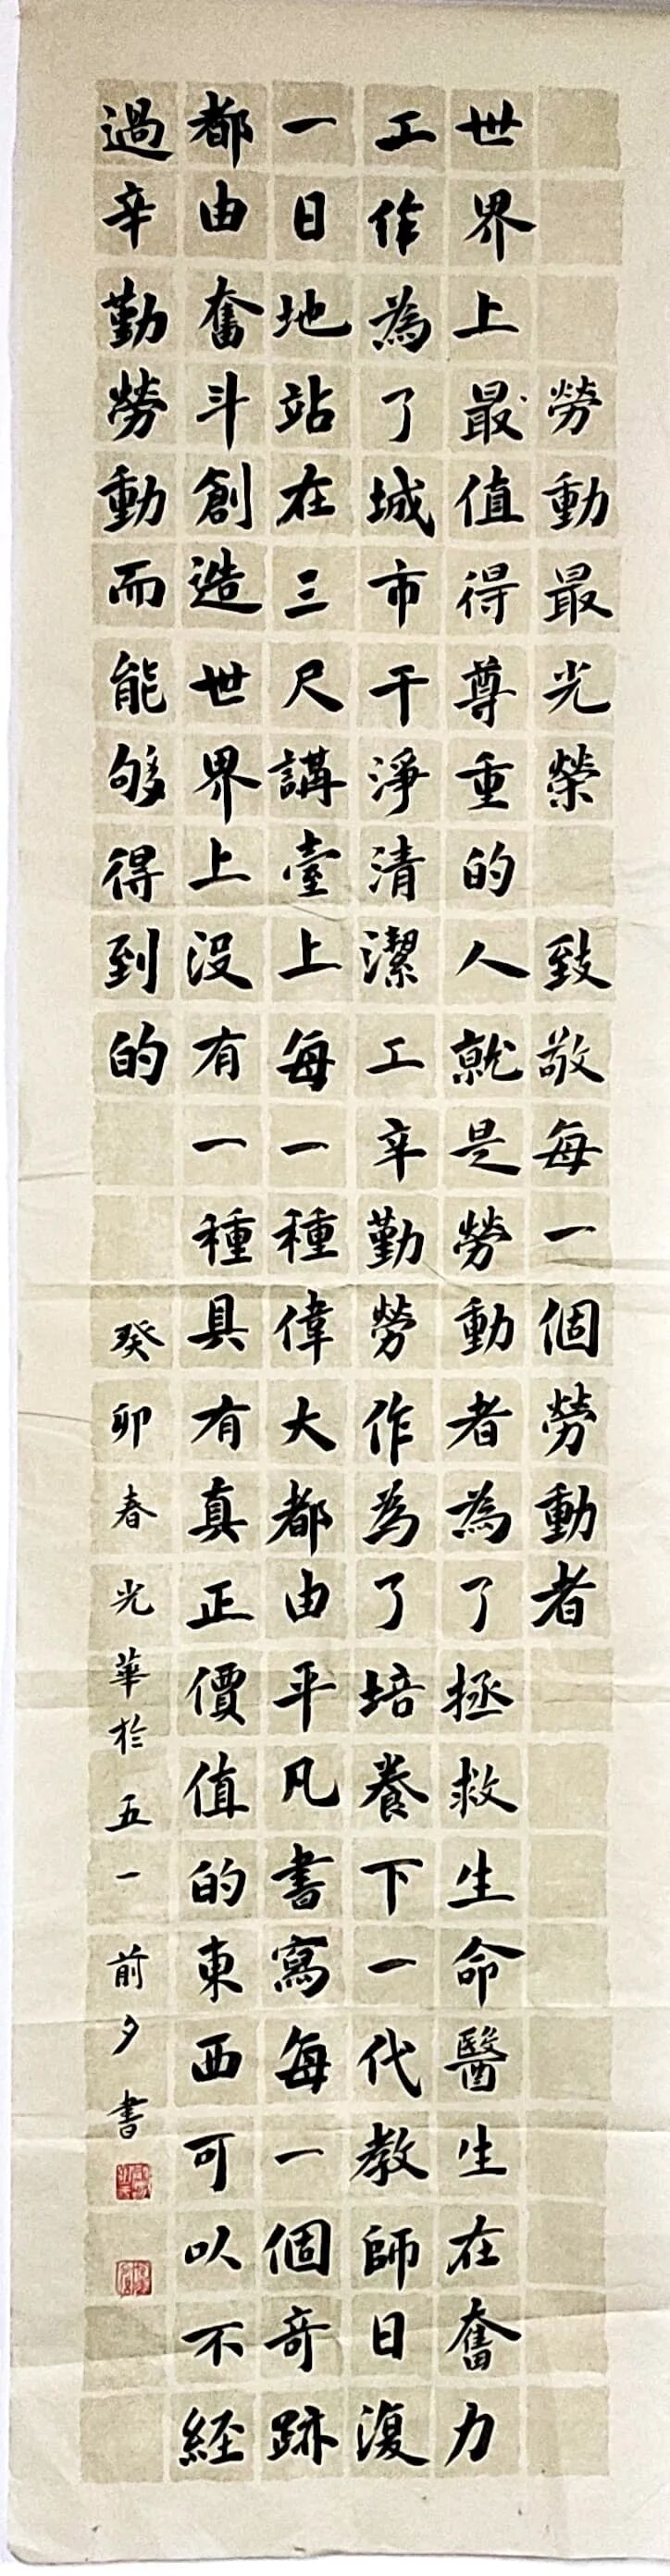 勞動最光榮 致敬每一個勞動者
世界上最值得尊重的人就是勞動者為了拯救生命醫生在奮力
工作為了城市干淨清潔工辛勤勞作為了培養下一代教師日復
一日地站在三尺講臺上每一種偉大都由平凡書寫每一個奇跡
都由奮斗創造世界上沒有一種具有真正價值的東西可以不經
過辛勤勞動而能够得到的
癸卯春光華於五一前夕書